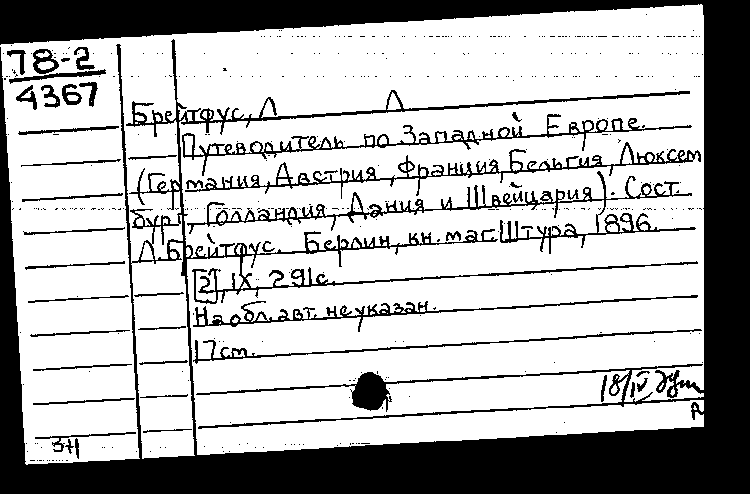 78-2
4367
Брейтфус, Л Л
Путеводитель по Западной Европе.
(Германия, Австрия, Франция, Бельгия, Люксем
бург, Голландия, Дания и Швейцария). Сост.
Л. Брейтфус. Берлин, кн. маг. Штура, 1896.
[2], IX, 291с.
На обл. авт. не указан.
17см.
18/IV